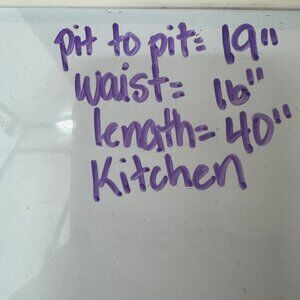 pit to pit= 19"
waist= 16"
length= 40"
Kitchen